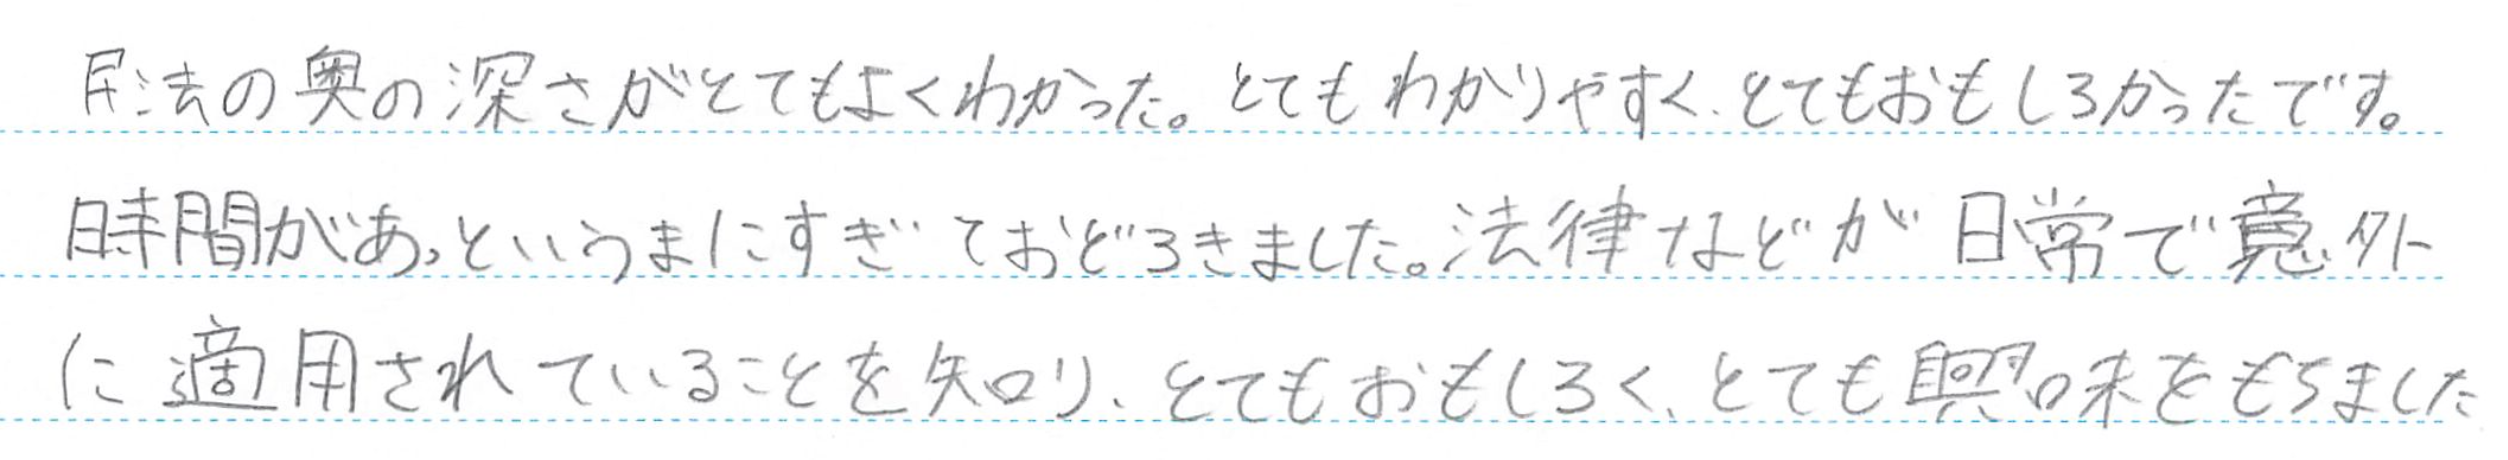 法の奥の深さがとてもよくわかった。とてもわかりやすく、とてもおもしろかったです。
時間があっというまにすぎておどろきました。法律などが日常で意外
に適用されていることを知り、とてもおもしろく、とても興味をもちました